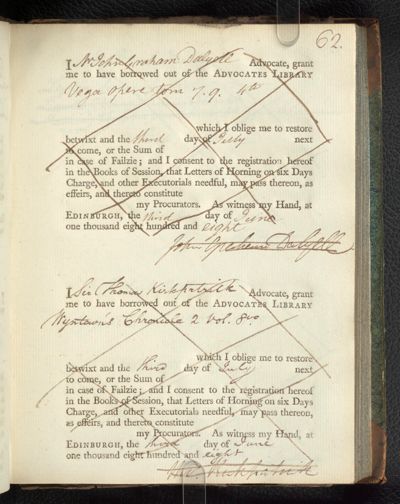 62.
I Mr John Graham Dalyell Advocate, grant
me to have borrowed out of the ADVOCATES LIBRARY
Vega opere tom 7. 9. 4to
which I oblige me to restore
betwixt and the third day of July next
to come, or the Sum of
in case of Failzie; and I consent to the registration hereof
in the Books of Session, that Letters of Horning on six Days
Charge, and other Executorials needful, may pass thereon, as
effeirs, and thereto constitute
my Procurators. As witness my Hand, at
EDINBURGH, the third day of June
one thousand eight hundred and eight
John Graham Dalyell
I Sir Thomas Kirkpatrick Advocate, grant
me to have borrowed out of the ADVOCATES LIBRARY
Wyntown's Chronicle 2 Vol. 8vo
which I oblige me to restore
betwixt and the third day of July next
to come, or the Sum of
in case of Failzie; and I consent to the registration hereof
in the Books of Session, that Letters of Horning on six Days
Charge, and other Executorials needful, may pass thereon,
as effeirs, and thereto constitute
my Procurators. As witness my Hand, at
EDINBURGH, the third day of June
one thousand eight hundred and eight
Kirkpatrick